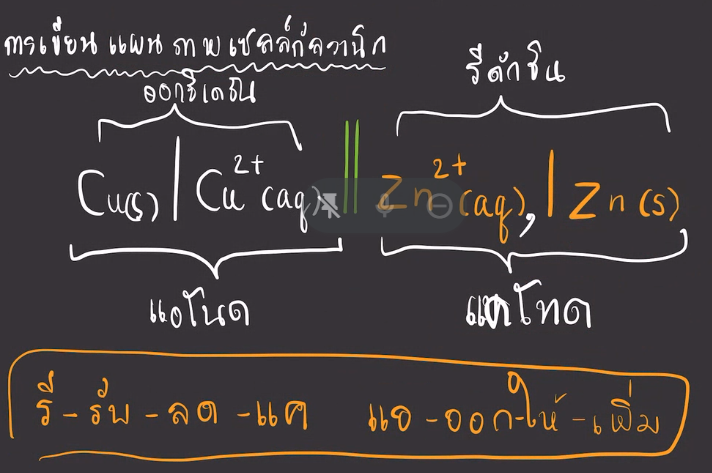 การเขียน แผน ภาพ เซลล์กัลวานิก
ออกซิเดชัน
รีดักชัน
Cu(s) | Cu²⁺(aq) || Zn²⁺(aq), | Zn (s)
แอโนด
แคโทด
รี - รับ - ลด - แค แอ - ออก - ให้ - เพิ่ม